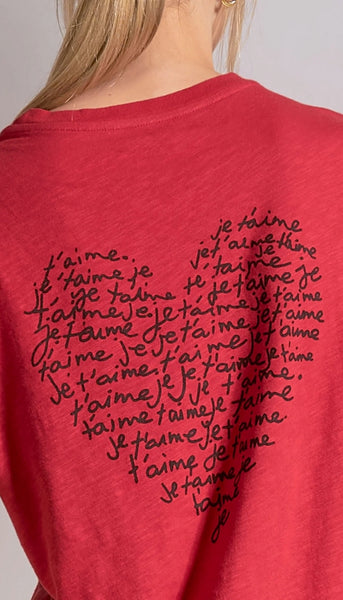 je t'aime
t'aime. je t'aime t'aime
je t'aime je je t'aime je
je t'aime je t'aime je
t'aime je t'aime je t'aime
je t'aime je t'aime je t'aime
t'aime je t'aime je t'aime
je t'aime je je t'aime je t'aime
t'aime je t'aime.
t'aime t'aime je t'aime
je t'aime je t'aime.
t'aime je t'aime
je t'aime je
t'aime
je